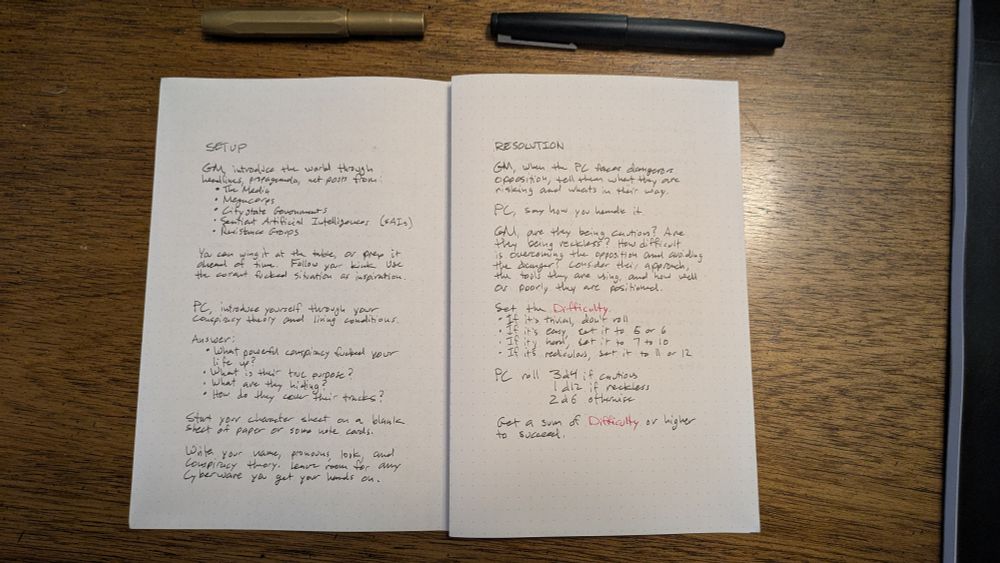 SETUP
GM, introduce the world through
headlines, propaganda, net posts from:
• The Media
• Megacorps
• City state Governments
• Sentient Artificial Intelligences (SAIs)
• Resistance Groups
You can wing it at the table, or prep it
ahead of time. Follow your kink. Use
the corant fucked sitvation as inspiration.
PC, introduce yourself through your
Conspiracy theory and living conditions.
Answer:
• What powerful conspiracy fucked your
life up?
• What is their true purpose?
• What are they hiding?
• How do they cover their tracks?
Start your character sheet on a blank
sheet of paper or some note cards.
Write your name, pronouns, look, and
Conspiracy theory. Leave room for any
Cyberware you get your hands on.
RESOLUTION
GM, when the PC faces dangerous
opposition, tell them what they are
risking and whats in their way.
PC, say how you handle it
GM, are they being cautious? Are
they being reckless? How difficult
is overcoming the opposition and avoiding
the danger? Consider their approach,
the tools they are using, and how well
or poorly they are positioned.
Set the Difficulty.
• If it's trivial, don't roll
• If it's easy, set it to 5 or 6
• If it's hard, set it to 7 to 10
• If it's rediculous, set it to 11 or 12
PC roll 3d4 if cautious
1d12 if reckless
2d6 otherwise
Get a sum of Difficulty or higher
to succeed.